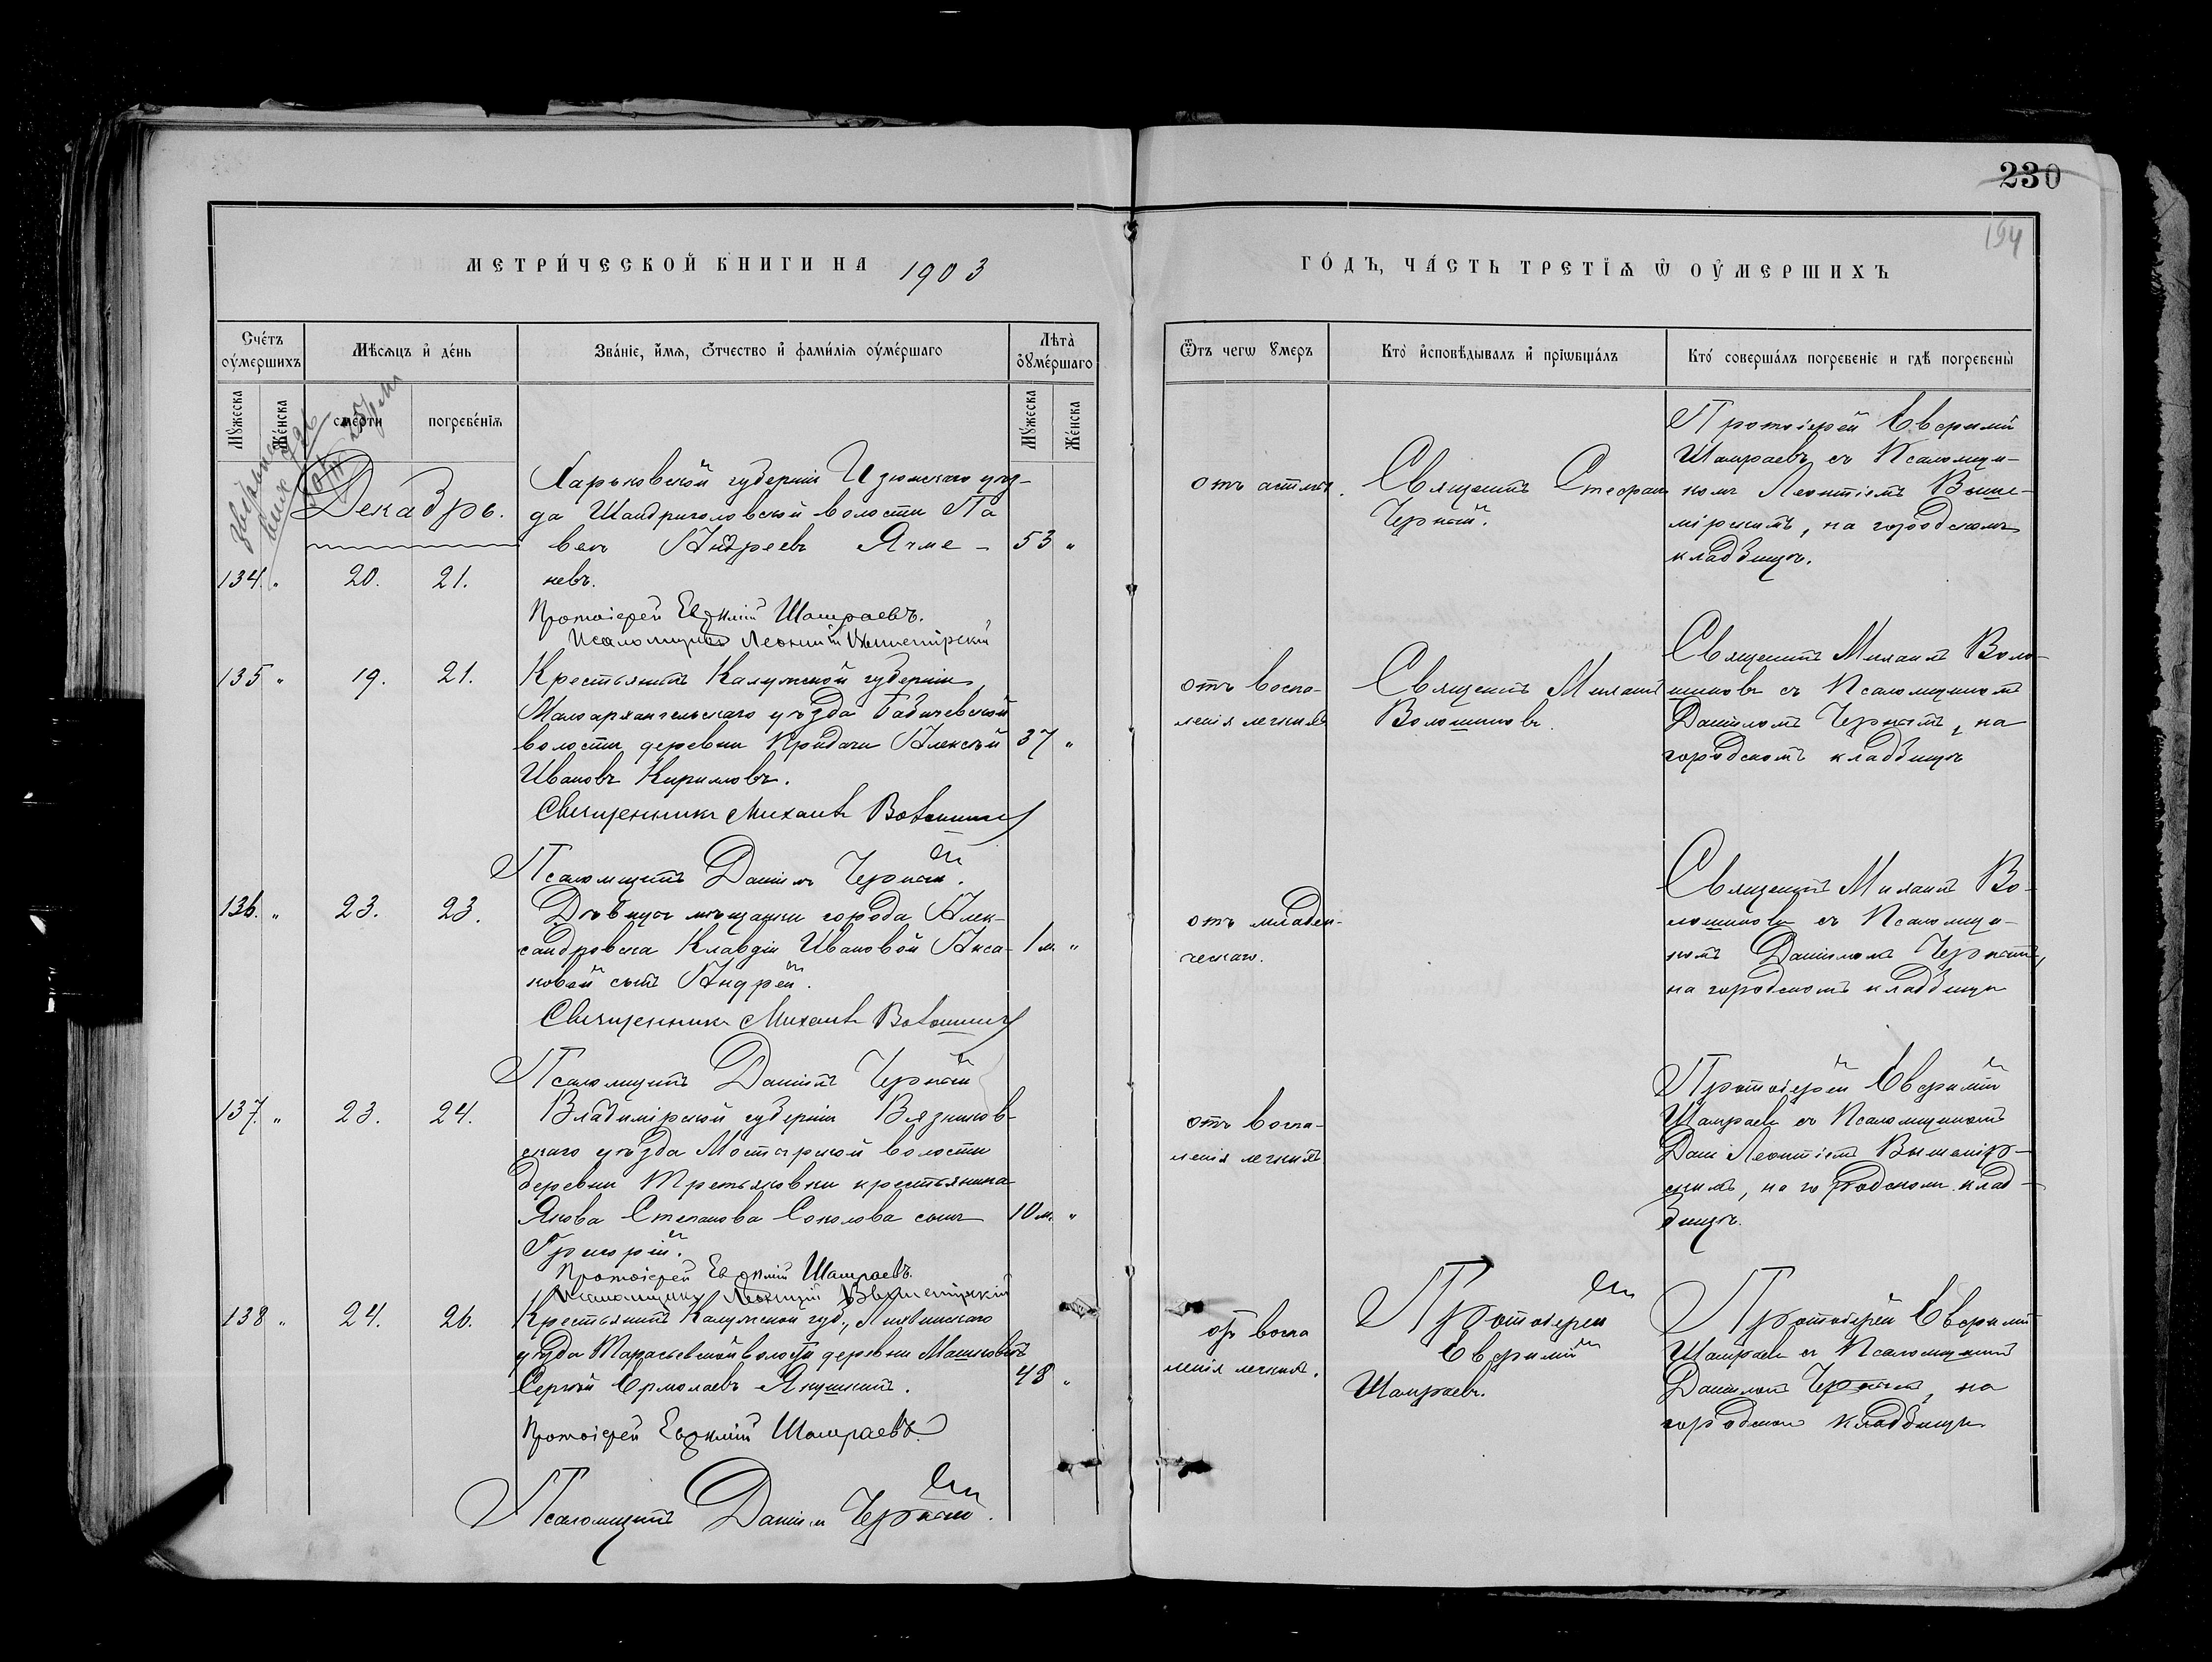 230
194
МЕТРИ́ЧЕСКОЙ КНИГИ НА 1903
ГО́ДЪ, ЧА́СТЬ ТРЕТІѦ Ѡ ОУ҆МЕРШИХЪ
Сче́тъ оу҆ме́ршихъ
Мѣсѧцъ и҆ де́нь
Зва́нїе, и҆́мѧ, ѻ҆́тчество и҆ фами́лїѧ оу҆ме́ршаго
Лѣта̀ оу҆ме́ршаго
Ѿъ чегѡ ᲂумеръ
Кто̀ и҆сповѣ́дывалъ и҆ прїѡбща́лъ
Кто́ соверша́лъ погребенїе и гдѣ̀ погребены̀
Му́жеска
Же́нска
сме́рти
погребе́нїѧ
Му́жеска
Же́нска
Декабрь.
134. "
20.
21.
Харьковской губерніи Изюмскаго уѣз-
да Шандриголовской волости Па
велъ Андреевъ Ячме-
невъ.
53 "
Протоіерей Евфимій Шамраевъ.
Псаломщикъ Леонтій Вышемірскій
отъ астмы.
Священникъ Стефанъ
Черный.
Протоіерей Евфимій
Шамраевъ съ Псаломщи-
комъ Леонтіемъ Выше-
мірскимъ, на городскомъ
кладбищѣ.
135 "
19.
21.
Крестьянинъ Калужской губерніи
Малоархангельскаго уѣзда Бабичевской
волости деревни Придачи Алексѣй
Ивановъ Кириловъ.
37 "
Священникъ Михаилъ Волошиновъ
Псаломщикъ Даніилъ Черный.
отъ воспа-
ленія легкихъ
Священникъ Михаилъ
Волошиновъ.
Священникъ Михаилъ Воло-
шиновъ съ Псаломщикомъ
Даниломъ Чернымъ, на
городскомъ кладбищѣ
136. "
23.
23.
Дѣвицы мѣщанки города Алек-
сандровска Клавдіи Ивановой Акса-
ковой сынъ Андрей.
1 м. "
Священникъ Михаилъ Волошиновъ
Псаломщикъ Даніилъ Черный
отъ младен-
ческаго.
Священникъ Михаилъ Во-
лошиновъ съ Псаломщи-
комъ Даніиломъ Чернымъ,
на городскомъ кладбищѣ
137. "
23.
24.
Владимірской губерніи Вязников-
скаго уѣзда Мостарской волости
деревни Третьяковки крестьянина
Якова Степанова Соколова сынъ
Григорій.
10 м. "
Протоіерей Евфимій Шамраевъ.
Псаломщикъ Леонтій Вышемірскій
отъ воспа-
ленія легкихъ
Протоіерей Евфимій
Шамраевъ съ Псаломщикомъ
Дані Леонтіемъ Вышемір-
скимъ, на городскомъ клад-
бищѣ.
138 "
24.
26.
Крестьянинъ Калужской губ., Лихвинскаго
уѣзда Тарасьевской волости деревни Машковичъ
Сергѣй Ермолаевъ Якушкинъ.
48 "
Протоіерей Евфимій Шамраевъ.
Псаломщикъ Даніилъ Черный.
отъ воспа
ленія легкихъ.
Протоіерей
Евфимій
Шамраевъ.
Протоіерей Евфимій
Шамраевъ съ Псаломщикомъ
Даниломъ Чернымъ, на
городскомъ кладбищѣ